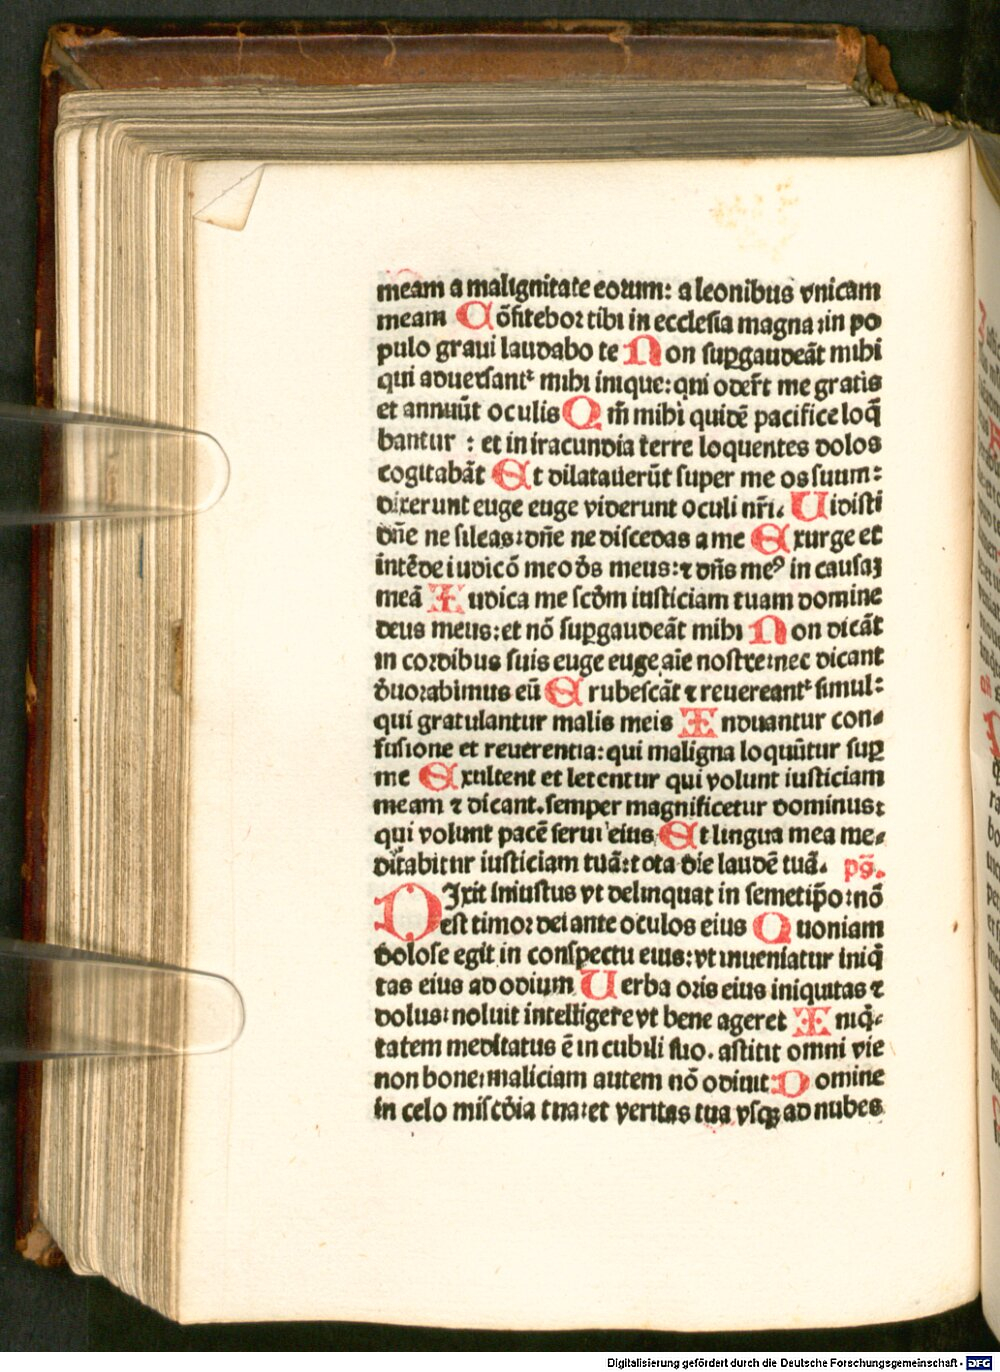 meam a malignitate eorum: a leonibus vnicam
meam Cōfitebor tibi in ecclesia magna: in po
pulo graui laudabo te Non supgaudeāt mihi
qui aduersant᷑ mihi inique: qui oder̄t me gratis
et annuūt oculis Qm̄ mihi quidē pacifice loq̄
bantur : et in iracundia terre loquentes dolos
cogitabāt Et dilatauerūt super me os suum:
dixerunt euge euge viderunt oculi nr̄i. Uidisti
dn̄e ne sileas: dn̄e ne discedas a me Exurge et
intēde iudicō meo ds̄ meus: ⁊ dn̄s meꝰ in causaȝ
meā Iudica me scd̄m iusticiam tuam domine
deus meus: et nō supgaudeāt mihi Non dicāt
in cordibus suis euge euge aīe nostre: nec dicant
d̄uorabimus eū Erubescāt ⁊ reuereant᷑ simul:
qui gratulantur malis meis Induantur con-
fusione et reuerentia: qui maligna loquūtur suꝑ
me Exultent et letentur qui volunt iusticiam
meam ⁊ dicant. semper magnificetur dominus:
qui volunt pacē serui eius Et lingua mea me-
ditabitur iusticiam tuā: tota die laudē tuā. ps̄.
DIxit iniustus vt delinquat in semetip̄o: nō
est timor dei ante oculos eius Quoniam
dolose egit in conspectu eius: vt inueniatur iniq̄
tas eius ad odium Uerba oris eius iniquitas ⁊
dolus: noluit intelligere vt bene ageret Iniq̄-
tatem meditatus ē in cubili suo. astitit omni vie
non bone: maliciam autem nō odiuit: Domine
in celo misc̄dia tua: et veritas tua vsqꝫ ad nubes
Digitalisierung gefördert durch die Deutsche Forschungsgemeinschaft - DFG